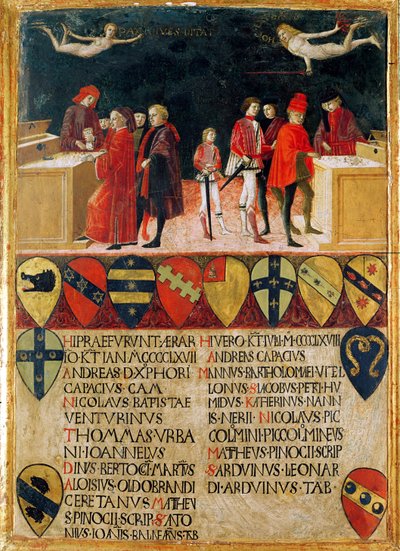 PAX CIVES DITAT
HI PRAEFVERVNT AERAR
IO KT IAN M·CCCCLXVII
ANDREAS·D·XPHORI
CAPACIVS·CAM·
NICOLAVS·BATISTAE
VENTVRINVS
THOMMAS·VRBA
NI·IOANNELVS
DINVS·BERTOCI·MARTIS
ALOISIVS·OLDOBRANDI
CERETANVS·MATHEV
S·PINOCII·SCRIPS·ATO
NIVS·IOANIS·BALNEARS·TB
HI VERO·KT·IVLII·M·CCCCLXVIII
ANDREAS CAPACIVS
MANNVS·BARTHOLOMAEI·VITEL
LONVS·IACOBVS·PETRI·HV
MIDVS·KATERINVS·NANN
IS·NERII·NICOLAVS·PIC
COLMINI·PICCOLMINEVS
MATHEVS·PINOCII·SCRIP
S·ARDVINVS·LEONAR
DI·ARDVINVS·TAB·